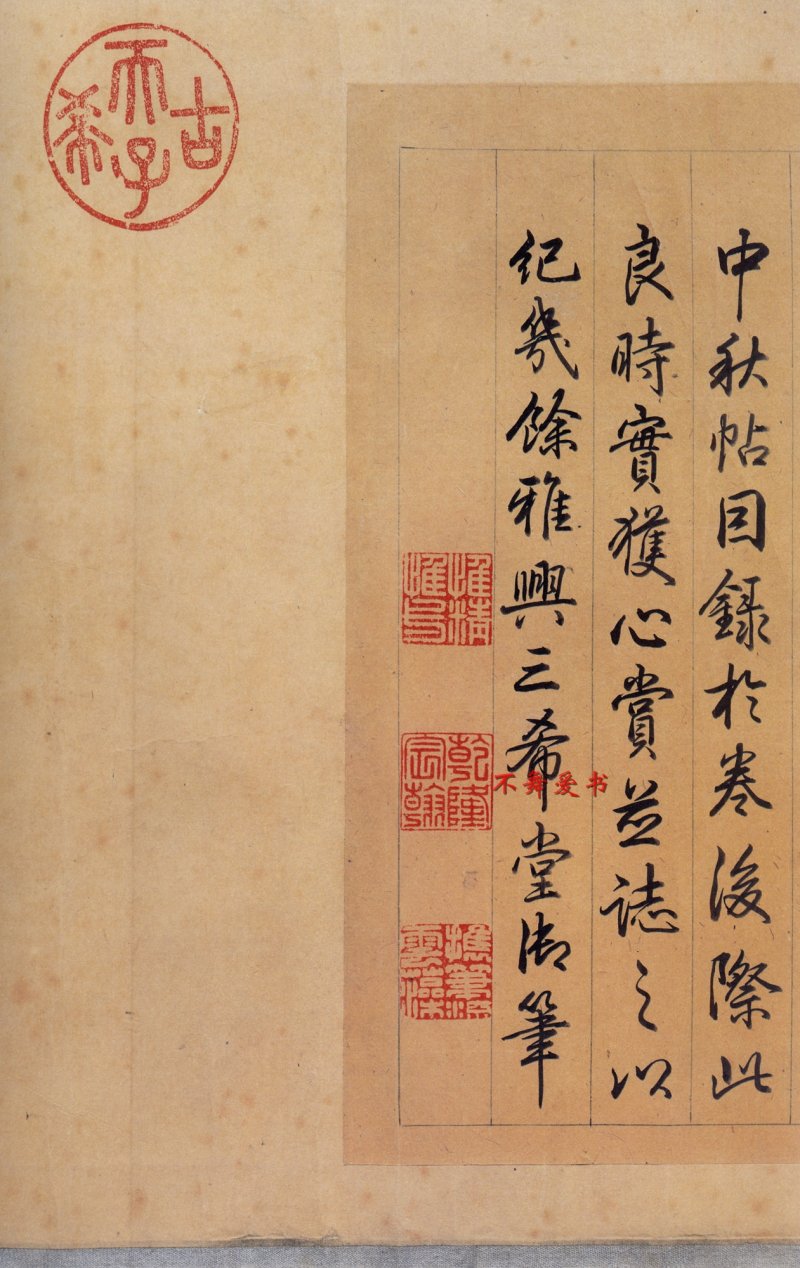 中秋帖目錄於卷後際此
良時實獲心賞並誌之以
紀幾餘雅興三希堂御筆
惟精惟一
乾隆宸翰
古希天子
不舞爱书